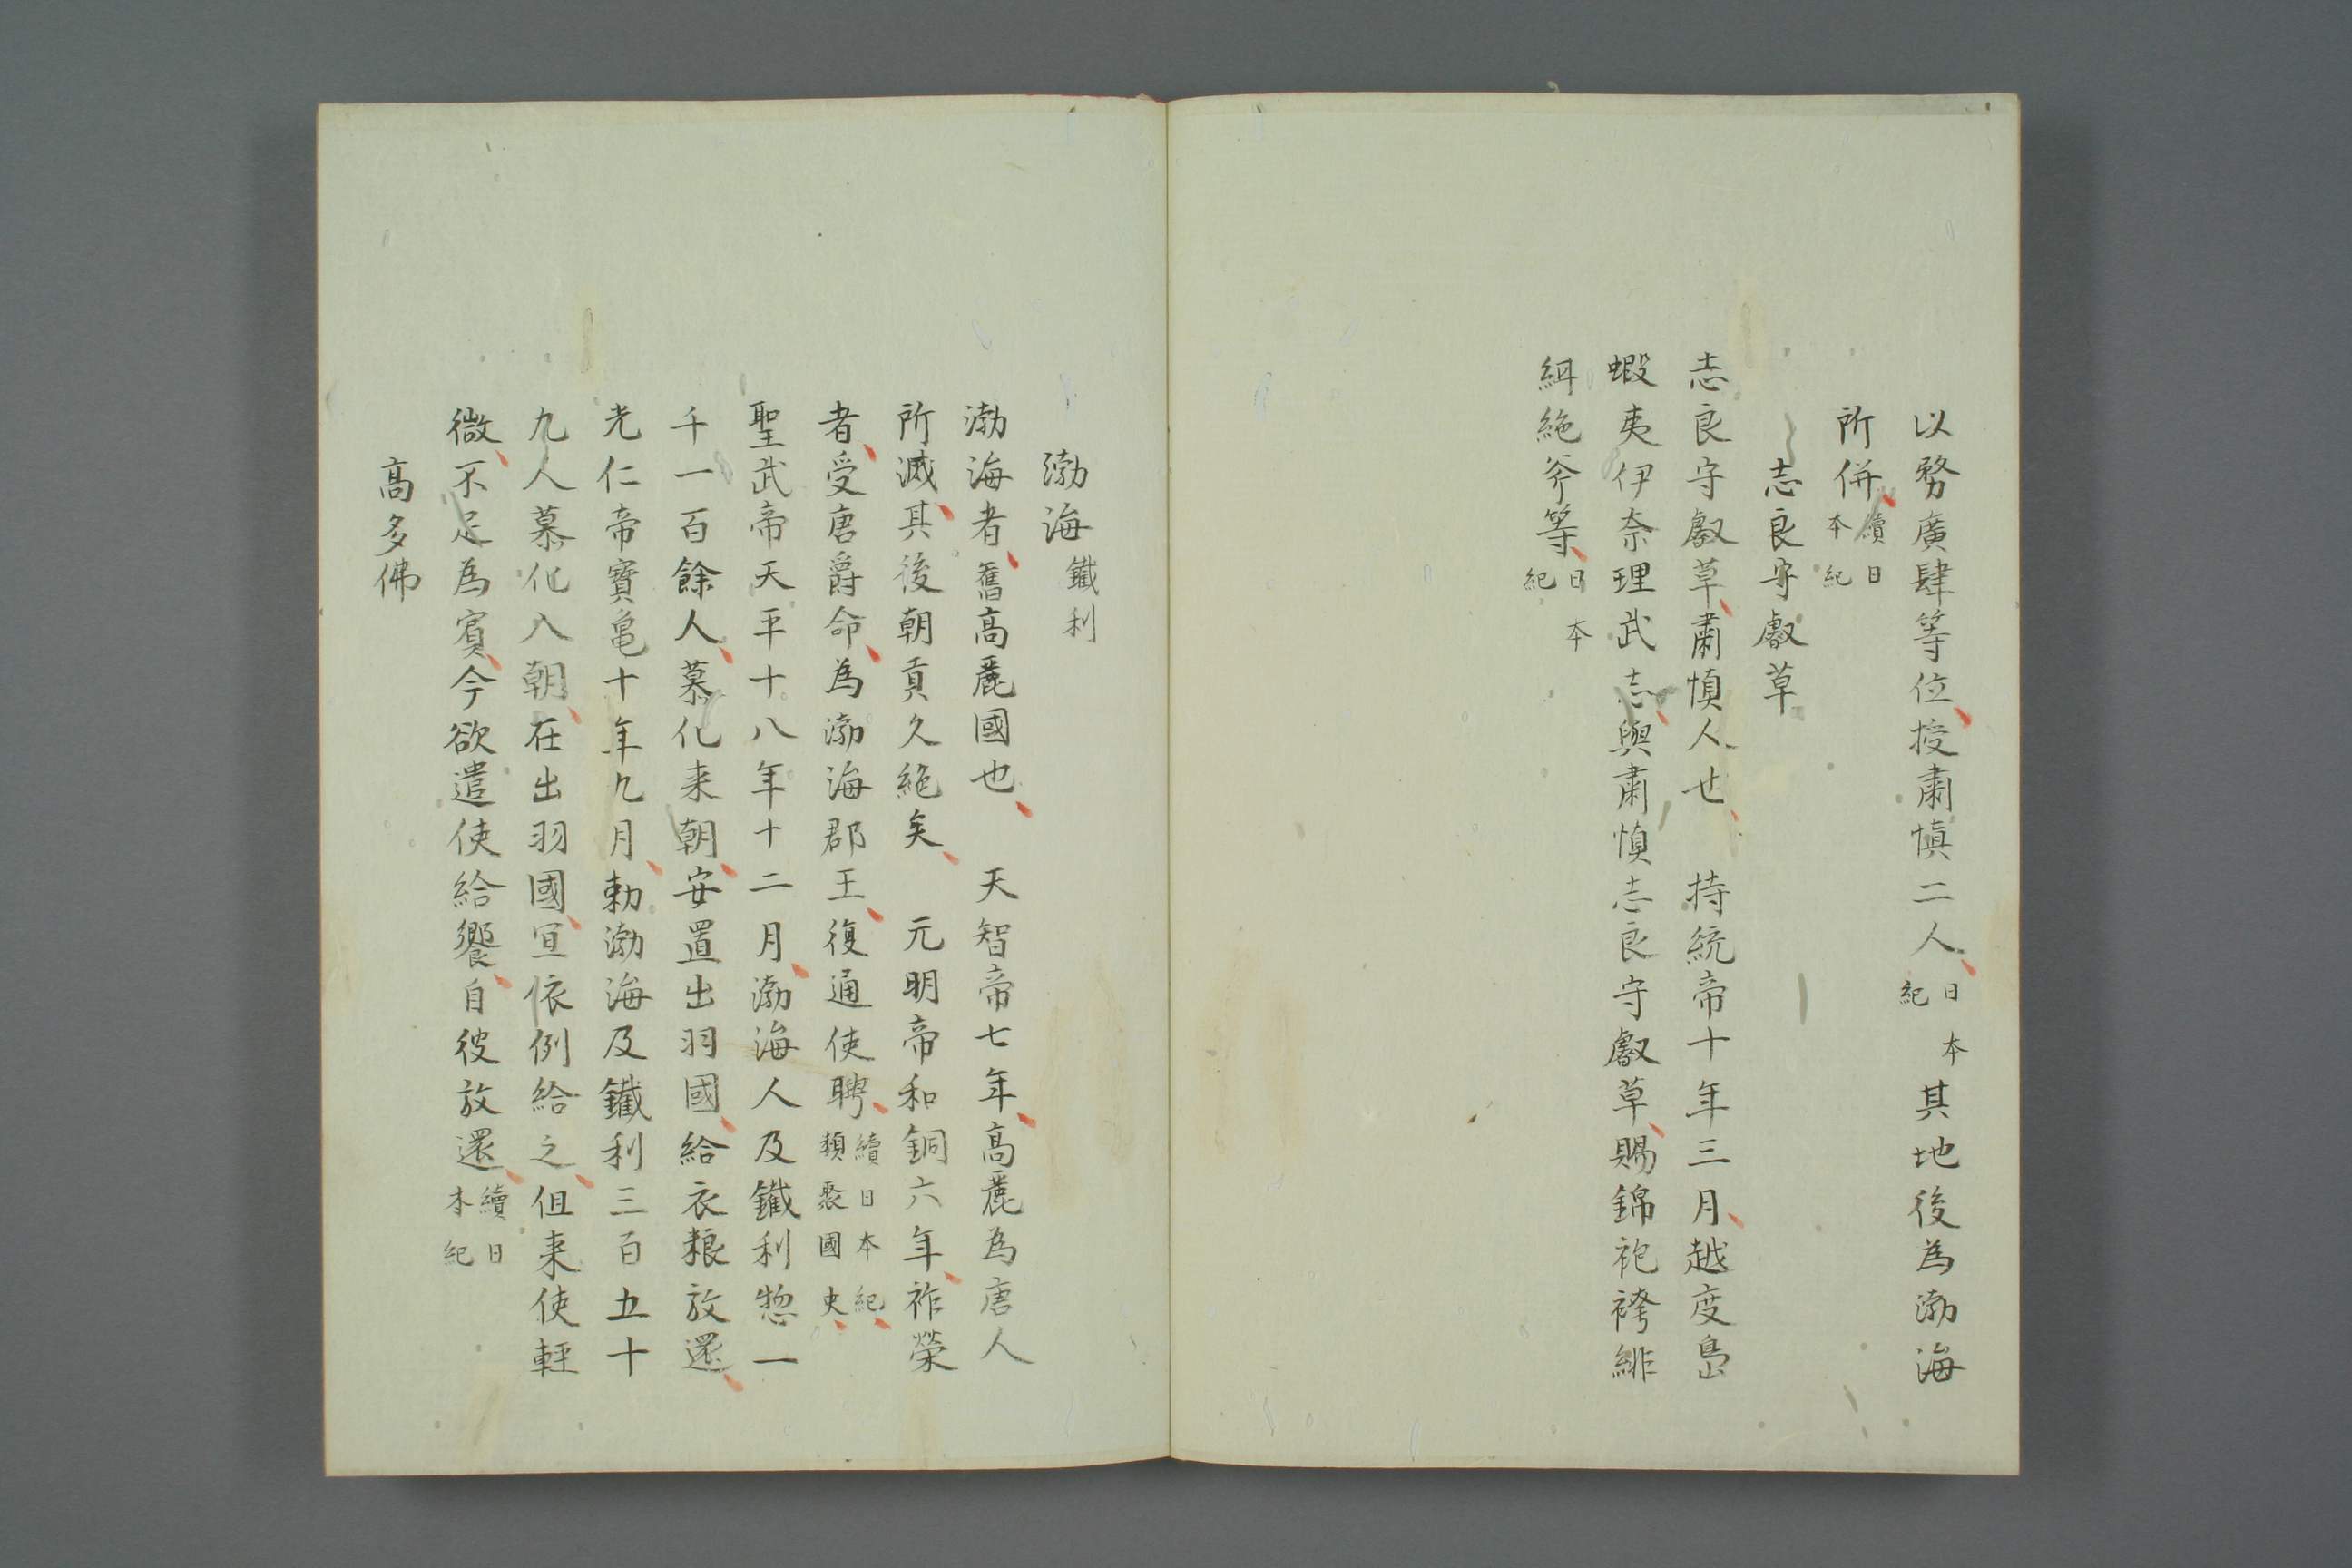 以務廣肆等位授肅慎二人日本紀其地後為渤海
所併續日本紀
志良守叡草
志良守叡草肅慎人也　持統帝十年三月越度島
蝦夷伊奈理武志與肅慎志良守叡草賜錦袍袴緋
絹絁斧等日本紀
渤海鐵利
渤海者舊髙麗國也　天智帝七年髙麗為唐人
所滅其後朝貢久絶矣　元明帝和銅六年祚榮
者受唐爵命為渤海郡王復通使聘續日本紀類聚國史
聖武帝天平十八年十二月渤海人及鐵利惣一
千一百餘人慕化来朝安置出羽國給衣粮放還
光仁帝寳亀十年九月勅渤海及鐵利三百五十
九人慕化入朝在出羽國宜依例給之但来使輕
微不足為賓今欲遣使給饗自彼放還續日本紀
髙多佛